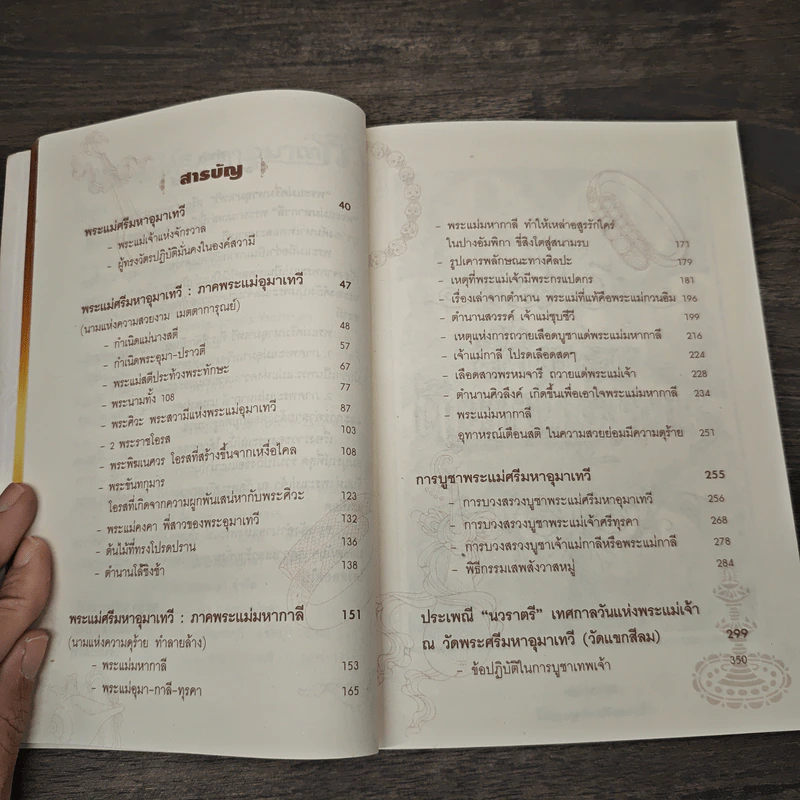 สารบัญ
พระแม่ศรีมหาอุมาเทวี 40
- พระแม่เจ้าแห่งจักรวาล
- ผู้ทรงวัตรปฏิบัติมั่นคงในองค์สวามี
พระแม่ศรีมหาอุมาเทวี : ภาคพระแม่อุมาเทวี 47
(นามแห่งความสวยงาม เมตตาการุณย์)
- กำเนิดแม่นางสตี 48
- กำเนิดพระอุมา-ปราวตี 57
- พระแม่สตีประท้วงพระทักษะ 67
- พระนามทั้ง 108 77
- พระศิวะ พระสวามีแห่งพระแม่อุมาเทวี 87
- 2 พระราชโอรส 103
- พระพิฆเนศวร โอรสที่สร้างขึ้นจากเหงื่อไคล 108
- พระขันทกุมาร
โอรสที่เกิดจากความผูกพันเสน่หากับพระศิวะ 123
- พระแม่คงคา พี่สาวของพระอุมาเทวี 132
- ต้นไม้ที่ทรงโปรดปราน 136
- ตำนานโล้ชิงช้า 138
พระแม่ศรีมหาอุมาเทวี : ภาคพระแม่มหากาลี 151
(นามแห่งความดุร้าย ทำลายล้าง)
- พระแม่มหากาลี 153
- พระแม่อุมา-กาลี-ทุรคา 165
- พระแม่มหากาลี ทำให้เหล่าอสูรรักใคร่
ในปางอัมพิกา ขี่สิงโตสู่สนามรบ 171
- รูปเคารพลักษณะทางศิลปะ 179
- เหตุที่พระแม่เจ้ามีพระกรแปดกร 181
- เรื่องเล่าจากตำนาน พระแม่ที่แท้คือพระแม่กวนอิม 196
- ตำนานสวรรค์ เจ้าแม่ชุบชีวี 199
- เหตุแห่งการถวายเลือดบูชาแด่พระแม่มหากาลี 216
- เจ้าแม่กาลี โปรดเลือดสดๆ 224
- เลือดสาวพรหมจารี ถวายแด่พระแม่เจ้า 228
- ตำนานศิวลึงค์ เกิดขึ้นเพื่อเอาใจพระแม่มหากาลี 234
- พระแม่มหากาลี
อุทาหรณ์เตือนสติ ในความสวยย่อมมีความดุร้าย 251
การบูชาพระแม่ศรีมหาอุมาเทวี 255
- การบวงสรวงบูชาพระแม่ศรีมหาอุมาเทวี 256
- การบวงสรวงบูชาพระแม่เจ้าศรีทุรคา 268
- การบวงสรวงบูชาเจ้าแม่กาลีหรือพระแม่กาลี 278
- พิธีกรรมเสพสังวาสหมู่ 284
ประเพณี “นวราตรี” เทศกาลวันแห่งพระแม่เจ้า
ณ วัดพระศรีมหาอุมาเทวี (วัดแขกสีลม) 299
- ข้อปฏิบัติในการบูชาเทพเจ้า 350